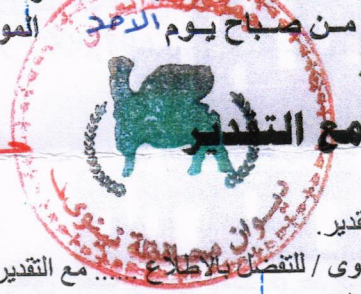 من صباح يوم الاحد المو
مع التقدير
ديوان محافظة نينوى
قدير.
وى / للتفضل بالاطلاع ..... مع التقدير